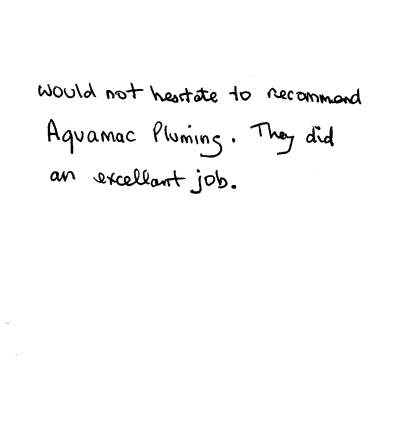 would not hesitate to recommend
Aquamac Pluming. They did
an excellant job.